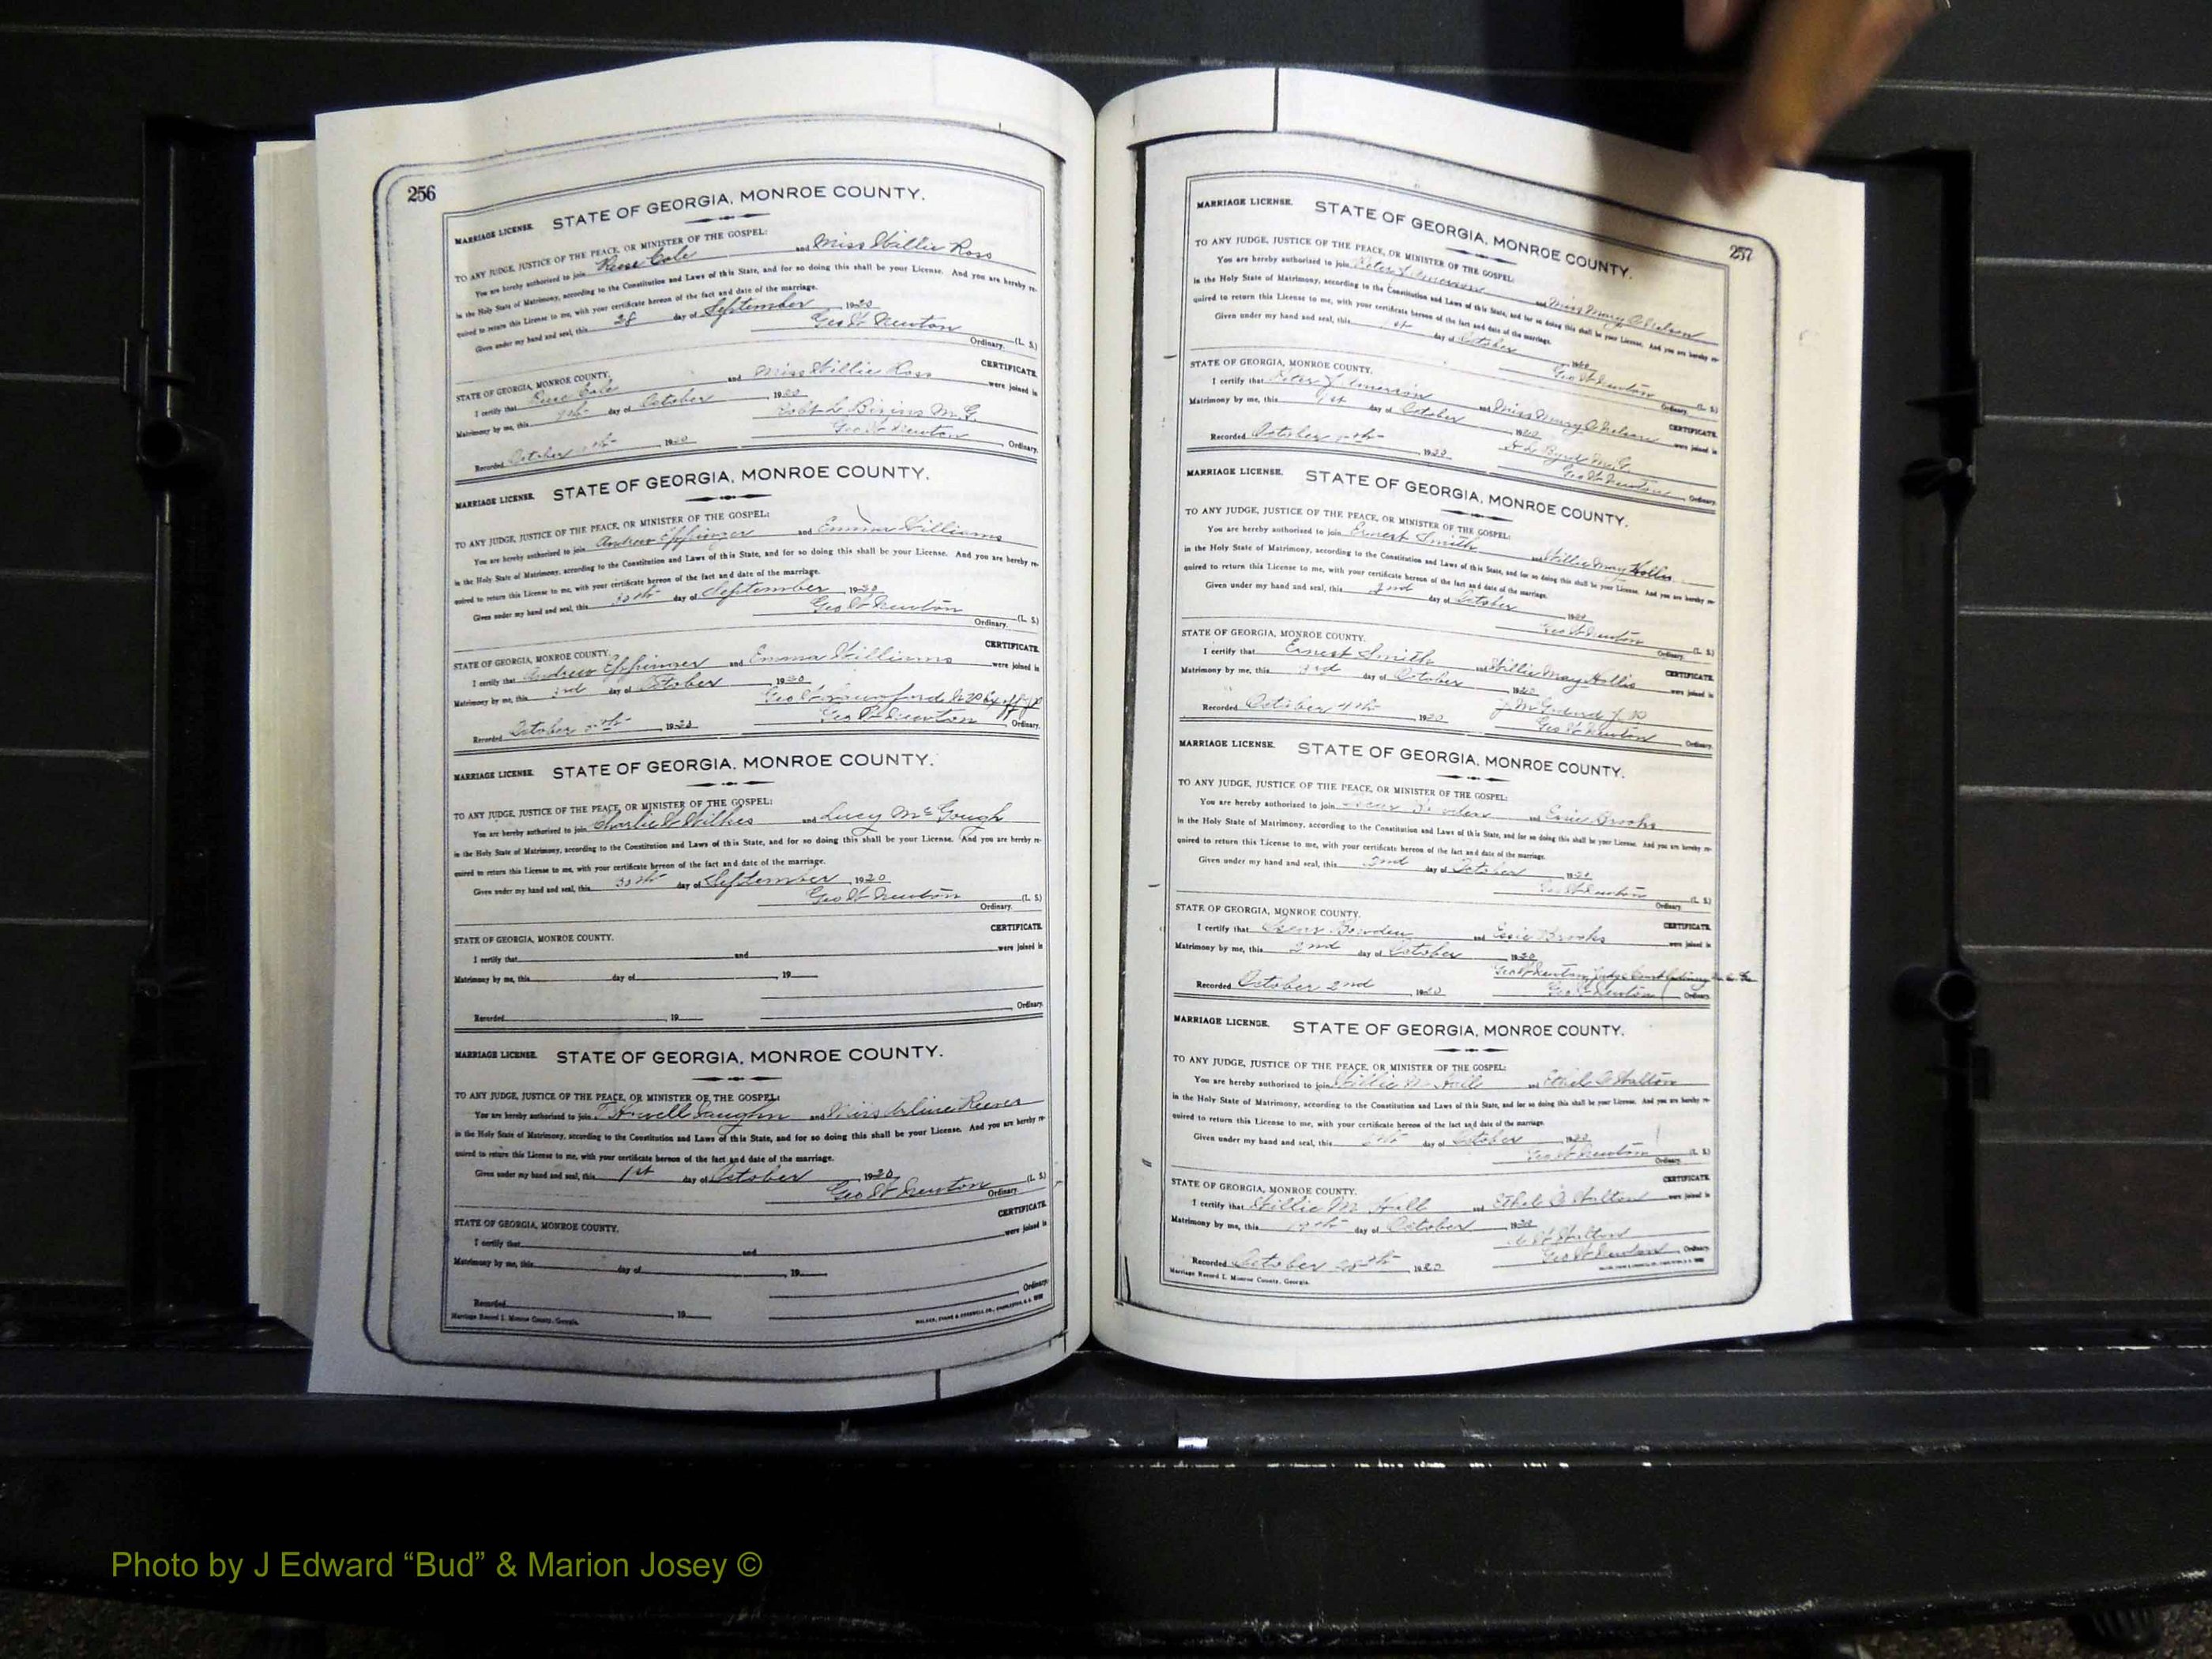 256
MARRIAGE LICENSE. STATE OF GEORGIA, MONROE COUNTY.
TO ANY JUDGE, JUSTICE OF THE PEACE, OR MINISTER OF THE GOSPEL:
You are hereby authorized to join Reese Cole and Miss Willie Ross
in the Holy State of Matrimony, according to the Constitution and Laws of this State, and for so doing this shall be your License. And you are hereby re-
quired to return this License to me, with your certificate hereon of the fact and date of the marriage.
Given under my hand and seal, this 28 day of September 1920
Geo W Newton (L. S.)
Ordinary.
CERTIFICATE.
STATE OF GEORGIA, MONROE COUNTY.
I certify that Reese Cole and Miss Willie Ross were joined in
Matrimony by me, this day of October 1920
Robt L M. G.
Recorded October 1920 Geo W Newton Ordinary.
MARRIAGE LICENSE. STATE OF GEORGIA, MONROE COUNTY.
TO ANY JUDGE, JUSTICE OF THE PEACE, OR MINISTER OF THE GOSPEL:
You are hereby authorized to join Andrew Eppinger and Emma Williams
in the Holy State of Matrimony, according to the Constitution and Laws of this State, and for so doing this shall be your License. And you are hereby re-
quired to return this License to me, with your certificate hereon of the fact and date of the marriage.
Given under my hand and seal, this 30th day of September 1920
Geo W Newton (L. S.)
Ordinary.
CERTIFICATE.
STATE OF GEORGIA, MONROE COUNTY.
I certify that Andrew Eppinger and Emma Williams were joined in
Matrimony by me, this 3rd day of October 1920
Recorded October 1920 Geo W Newton Ordinary.
MARRIAGE LICENSE. STATE OF GEORGIA, MONROE COUNTY.
TO ANY JUDGE, JUSTICE OF THE PEACE, OR MINISTER OF THE GOSPEL:
You are hereby authorized to join Charlie W Wilkes and Lucy McGough
in the Holy State of Matrimony, according to the Constitution and Laws of this State, and for so doing this shall be your License. And you are hereby re-
quired to return this License to me, with your certificate hereon of the fact and date of the marriage.
Given under my hand and seal, this 30th day of September 1920
Geo W Newton (L. S.)
Ordinary.
CERTIFICATE.
STATE OF GEORGIA, MONROE COUNTY.
I certify that and were joined in
Matrimony by me, this day of , 19
Recorded 19 Ordinary.
MARRIAGE LICENSE. STATE OF GEORGIA, MONROE COUNTY.
TO ANY JUDGE, JUSTICE OF THE PEACE, OR MINISTER OF THE GOSPEL:
You are hereby authorized to join T Howell Vaughn and Miss Arline Reeves
in the Holy State of Matrimony, according to the Constitution and Laws of this State, and for so doing this shall be your License. And you are hereby re-
quired to return this License to me, with your certificate hereon of the fact and date of the marriage.
Given under my hand and seal, this 1st day of October 1920
Geo W Newton (L. S.)
Ordinary.
CERTIFICATE.
STATE OF GEORGIA, MONROE COUNTY.
I certify that and were joined in
Matrimony by me, this day of , 19
Recorded 19 Ordinary.
Marriage Record I. Monroe County, Georgia. WALKER, EVANS & COGSWELL CO., CHARLESTON, S. C.
257
MARRIAGE LICENSE. STATE OF GEORGIA, MONROE COUNTY.
TO ANY JUDGE, JUSTICE OF THE PEACE, OR MINISTER OF THE GOSPEL:
You are hereby authorized to join Peter and Miss Mary
in the Holy State of Matrimony, according to the Constitution and Laws of this State, and for so doing this shall be your License. And you are hereby re-
quired to return this License to me, with your certificate hereon of the fact and date of the marriage.
Given under my hand and seal, this 1st day of October 1920
Geo W Newton (L. S.)
Ordinary.
CERTIFICATE.
STATE OF GEORGIA, MONROE COUNTY.
I certify that Peter and Miss Mary were joined in
Matrimony by me, this 1st day of October 1920
Byrd M. G.
Recorded October 1920 Geo W Newton Ordinary.
MARRIAGE LICENSE. STATE OF GEORGIA, MONROE COUNTY.
TO ANY JUDGE, JUSTICE OF THE PEACE, OR MINISTER OF THE GOSPEL:
You are hereby authorized to join Ernest Smith and Willie May Hollis
in the Holy State of Matrimony, according to the Constitution and Laws of this State, and for so doing this shall be your License. And you are hereby re-
quired to return this License to me, with your certificate hereon of the fact and date of the marriage.
Given under my hand and seal, this 2nd day of October 1920
Geo W Newton (L. S.)
Ordinary.
CERTIFICATE.
STATE OF GEORGIA, MONROE COUNTY.
I certify that Ernest Smith and Willie May Hollis were joined in
Matrimony by me, this 3rd day of October 1920
Recorded October 4th 1920 Geo W Newton Ordinary.
MARRIAGE LICENSE. STATE OF GEORGIA, MONROE COUNTY.
TO ANY JUDGE, JUSTICE OF THE PEACE, OR MINISTER OF THE GOSPEL:
You are hereby authorized to join Oscar Bowden and Essie Brooks
in the Holy State of Matrimony, according to the Constitution and Laws of this State, and for so doing this shall be your License. And you are hereby re-
quired to return this License to me, with your certificate hereon of the fact and date of the marriage.
Given under my hand and seal, this 2nd day of October 1920
Geo W Newton (L. S.)
Ordinary.
CERTIFICATE.
STATE OF GEORGIA, MONROE COUNTY.
I certify that Oscar Bowden and Essie Brooks were joined in
Matrimony by me, this 2nd day of October 1920
Geo W Newton, Judge Court Ordinary
Recorded October 2nd 1920 Geo W Newton Ordinary.
MARRIAGE LICENSE. STATE OF GEORGIA, MONROE COUNTY.
TO ANY JUDGE, JUSTICE OF THE PEACE, OR MINISTER OF THE GOSPEL:
You are hereby authorized to join Willie M Hall and Ethel O Walton
in the Holy State of Matrimony, according to the Constitution and Laws of this State, and for so doing this shall be your License. And you are hereby re-
quired to return this License to me, with your certificate hereon of the fact and date of the marriage.
Given under my hand and seal, this day of October 1920
Geo W Newton (L. S.)
Ordinary.
CERTIFICATE.
STATE OF GEORGIA, MONROE COUNTY.
I certify that Willie M Hall and Ethel O Walton were joined in
Matrimony by me, this day of October 1920
Walton
Recorded October 1920 Geo W Newton Ordinary.
Marriage Record I. Monroe County, Georgia.
Photo by J Edward “Bud” & Marion Josey ©